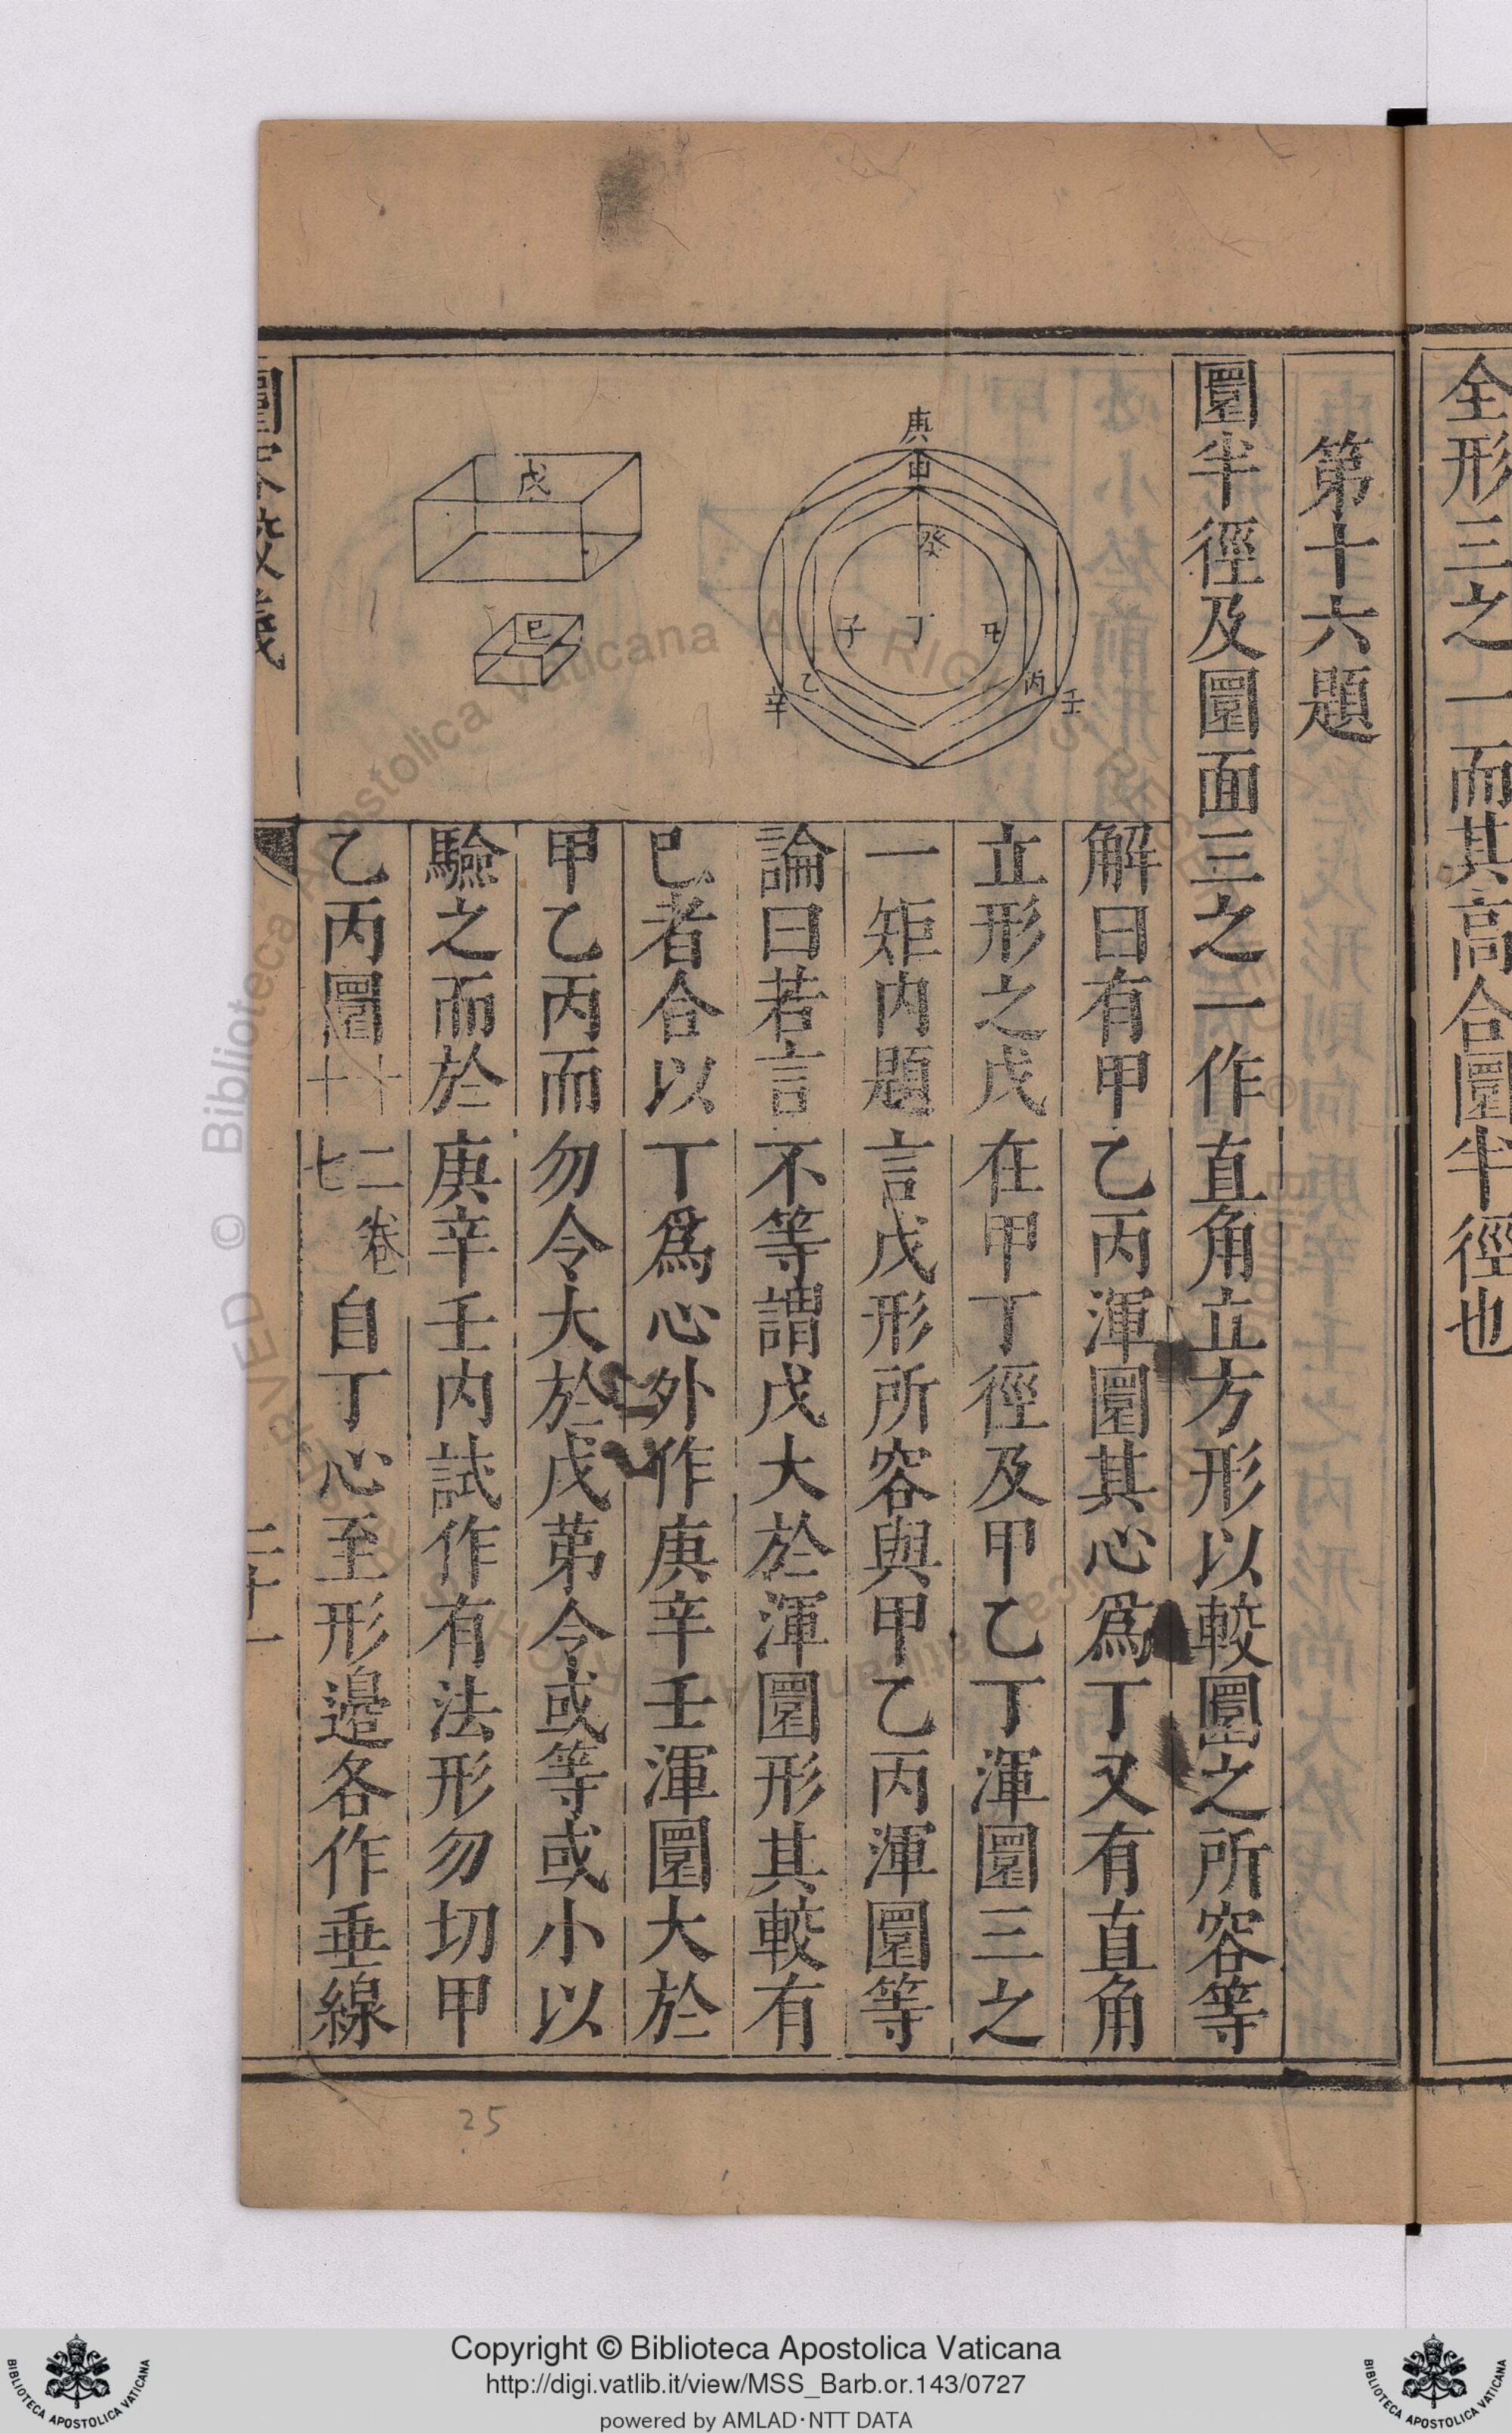 全形三之一而其高合圜半徑也
第十六題
圜半徑及圜面三之一作直角立方形以較圜之所容等
解曰有甲乙丙渾圜其心爲丁又有直角
立形之戊在甲丁徑及甲乙丁渾圜三之
一矩內題言戊形所容與甲乙丙渾圜等
論曰若言不等謂戊大於渾圜形其較有
巳者合以丁爲心外作庚辛壬渾圜大於
甲乙丙而勿令大於戊苐令或等或小以
驗之而於庚辛壬內試作有法形勿切甲
乙丙圜十二卷十七自丁心至形邉各作垂線
庚
甲
癸
子
丁
丑
乙
丙
辛
壬
戊
巳
圜容較義
二十一
25
Copyright © Biblioteca Apostolica Vaticana
http://digi.vatlib.it/view/MSS_Barb.or.143/0727
powered by AMLAD·NTT DATA
BIBLIOTECA APOSTOLICA VATICANA
BIBLIOTECA APOSTOLICA VATICANA